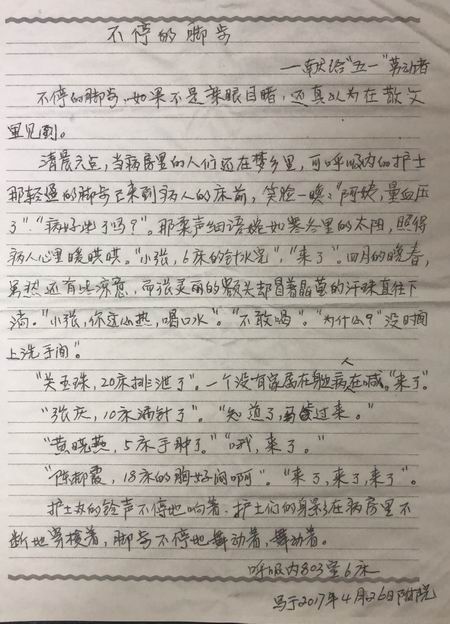 不停的脚步
—献给"五一"劳动者
不停的脚步,如果不是亲眼目睹,还真以为在散文
里见到。
清晨六点,当病房里的人们还在梦乡里,可呼吸内的护士
那轻盈的脚步已来到病人的床前,笑脸一唤:"阿姨,量血压
了"."病好些了吗?"。那柔声细语宛如寒冬里的太阳,照得
病人心里暖哄哄。"小张,6床的针水完","来了"。四月的晚春,
虽然还有些凉意,而张灵丽的额头却冒着晶莹的汗珠直往下
滴。"小张,你这么热,喝口水"。"不敢喝"。"为什么?"没时间
上洗手间"。
"关玉珠,20床排泄了"。一个没有家属在身边病人在喊。"来了"。
"张庆,10床漏针了"。"知道了,马上过来。"
"黄晓燕,5床手肿了。""哦,来了"。
"陈都霞,18床的胸好闷啊"。"来了,来了,来了"。
护士站的铃声不停地响着,护士们的身影在病房里不
断地穿梭着,脚步不停地舞动着,舞动着。
呼吸内803室6床
写于2017年4月26日附院